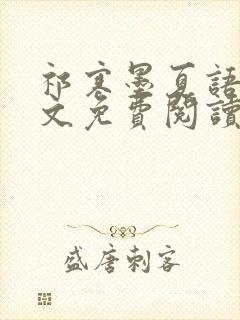 祁寒墨夏語
文免費閱讀
盛唐刺客